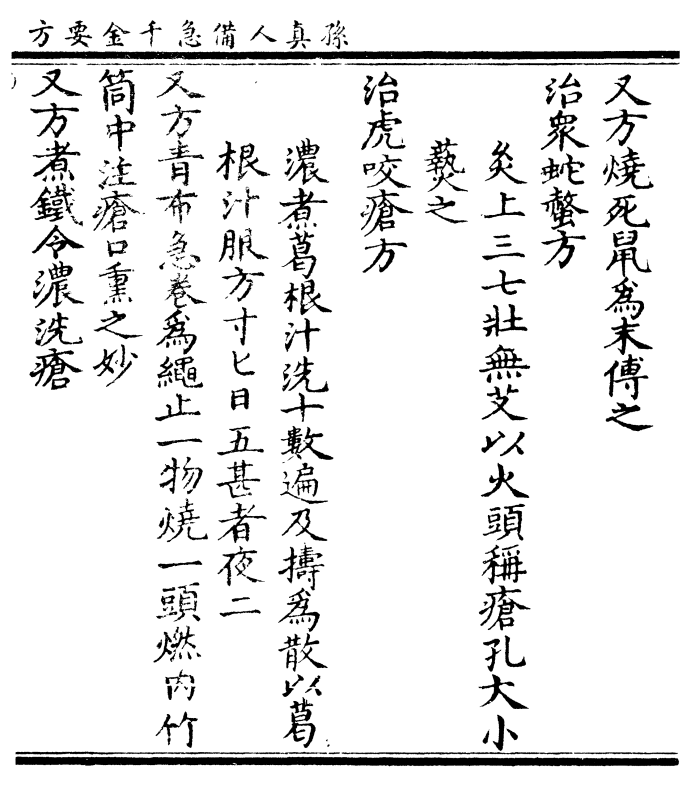 孫真人備急千金要方
又方燒死鼠為末傅之
治眾蛇螫方
灸上三七壯無艾以火頭稱瘡孔大小
爇之
治虎咬瘡方
濃煮葛根汁洗十數遍及擣為散以葛
根汁服方寸匕日五甚者夜二
又方青布急卷為繩止一物燒一頭燃內竹
筒中注瘡口熏之妙
又方煮鐵令濃洗瘡